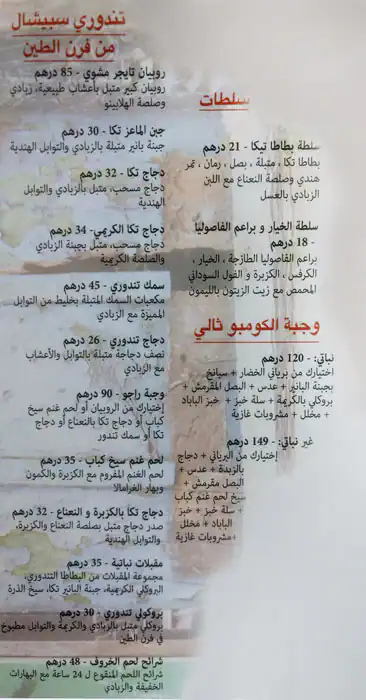 تندوري سبيشال
من فرن الطين
روبيان تايجر مشوي - 85 درهم
روبيان كبير متبل بأعشاب طبيعية، زبادي
وصلصة الهلابينو
جبن الماعز تكا - 30 درهم
جبنة بانير متبلة بالزبادي والتوابل الهندية
دجاج تكا - 32 درهم
دجاج مسحب، متبل بالزبادي والتوابل
الهندية
دجاج تكا الكريمي- 34 درهم
دجاج مسحب، متبل بجبنة الزبادي
والصلصة الكريمية
سمك تندوري - 45 درهم
مكعبات السمك المتبلة بخليط من التوابل
المميزة مع الزبادي
دجاج تندوري - 26 درهم
نصف دجاجة متبلة بالتوابل والأعشاب
مع الزبادي
وجبة راجو - 90 درهم
إختيارك من الروبيان أو لحم غنم سيخ
كباب أو دجاج تكا بالنعناع أو دجاج
تكا أو سمك تندور
لحم غنم سيخ كباب - 35 درهم
لحم الغنم المفروم مع الكزبرة والكمون
وبهار الغرامالا
دجاج تكا بالكزبرة و النعناع - 32 درهم
صدر دجاج متبل بصلصة النعناع والكزبرة،
والتوابل الهندية
مقبلات نباتية - 35 درهم
مجموعة المقبلات من البطاطا التندوري،
البروكلي الكريمية، جبنة البانير تكا، سيخ الذرة
بروكولي تندوري - 30 درهم
بروكلي متبل بالزبادي والكريمة والتوابل مطبوخ
في فرن الطين
شرائح لحم الخروف - 48 درهم
شرائح اللحم المنقوع ل 24 ساعة مع البهارات
الخفيفة والزبادي
سلطات
سلطة بطاطا تيكا - 21 درهم
بطاطا تكا ، متبلة ، بصل ، رمان ، تمر
هندي وصلصة النعناع مع اللبن
الزبادي بالعسل
سلطة الخيار و براعم الفاصوليا
- 18 درهم
براعم الفاصوليا الطازجة ، الخيار ،
الكرفس ، الكزبرة و الفول السوداني
المحمص مع زيت الزيتون بالليمون
وجبة الكومبو ثالي
نباتي: - 120 درهم
إختيارك من برياني الخضار + سبانخ
بجبنة البانير + عدس + البصل المقرمش +
بروكلي بالكريمة + سلة خبز + خبز الباباد
+ مخلل + مشروبات غازية
غير نباتي: - 149 درهم
إختيارك من البرياني + دجاج
بالزبدة + عدس +
البصل المقرمش +
سيخ لحم غنم كباب
+ سلة خبز + خبز
الباباد + مخلل
+مشروبات غازية